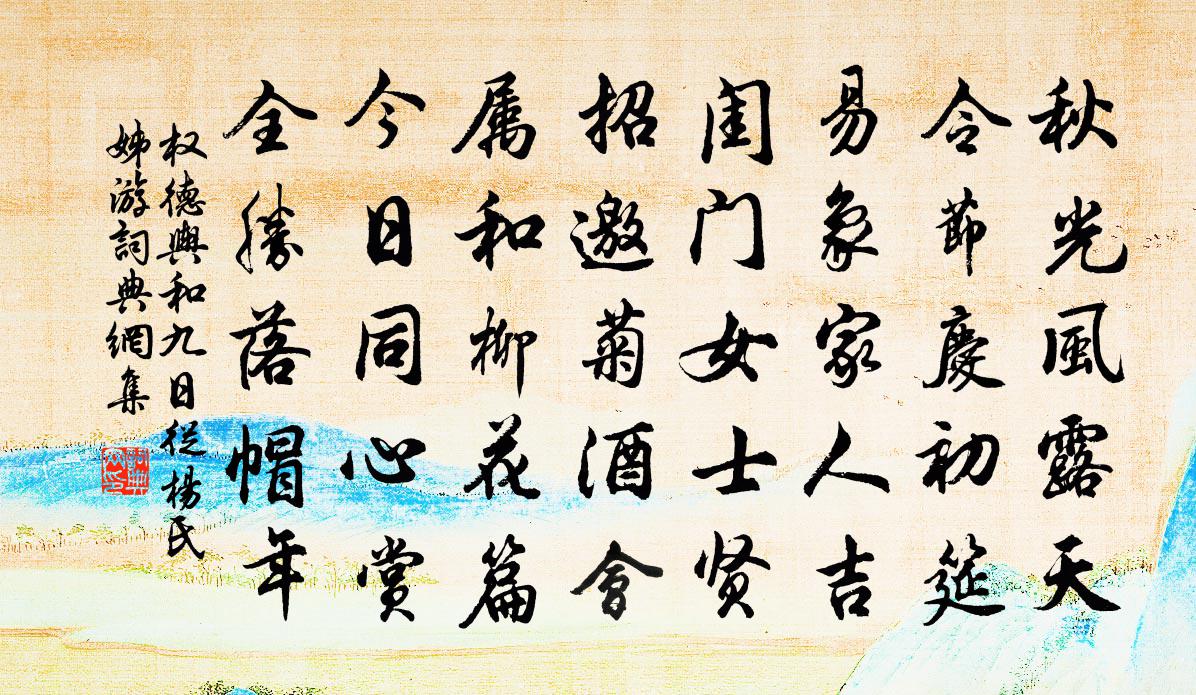 秋光風露天
令節慶初筵
易象家人吉
闺门女士贤
招邀菊酒會
属和柳花篇
今日同心赏
全勝落帽年
权德輿和九日從楊氏
姊游詞典網集